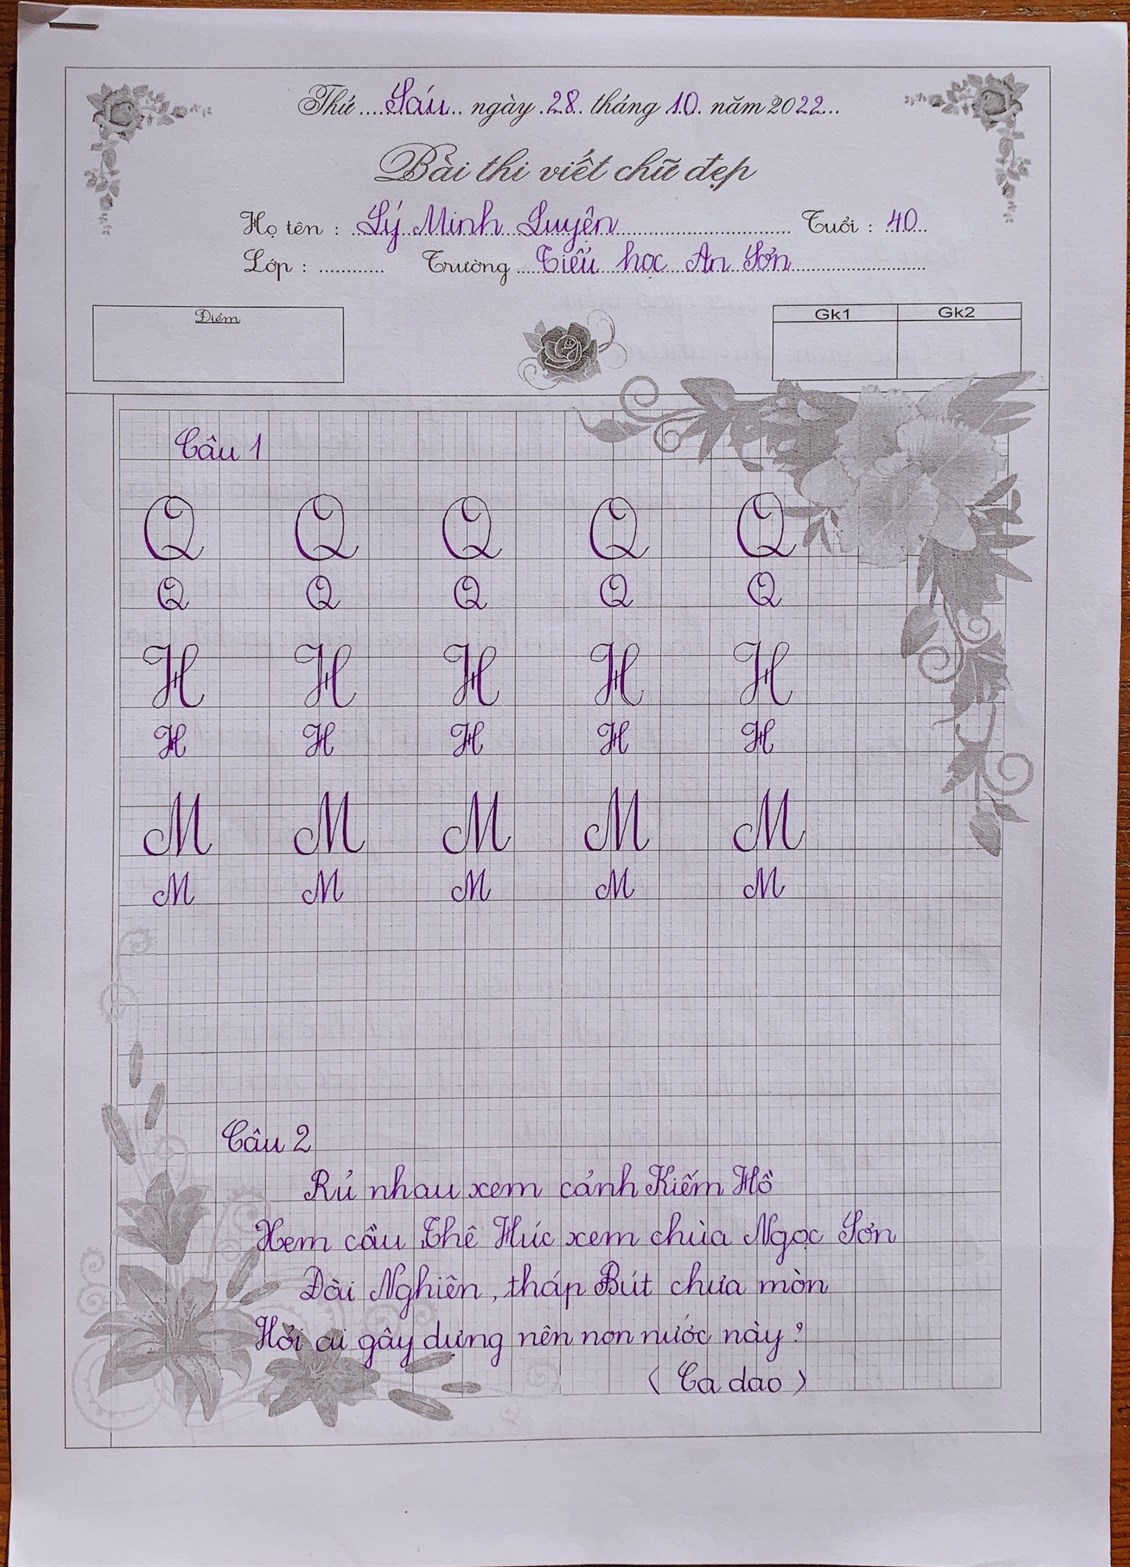 Thứ ....Sáu.. ngày .28. tháng 10. năm 2022..
Bài thi viết chữ đẹp
Họ tên : ..Lý Minh Luyện.............................. Tuổi : 40..
Lớp : ............ Trường ....Tiểu học An Sơn..........................
Điểm
Gk1 Gk2
Câu 1
Q Q Q Q Q
Q Q Q Q Q
H H H H H
H H H H H
M M M M M
M M M M M
Câu 2
Rủ nhau xem cảnh Kiếm Hồ
Xem cầu Thê Húc xem chùa Ngọc Sơn
Đài Nghiên, tháp Bút chưa mòn
Hỏi ai gây dựng nên non nước này?
( Ca dao )